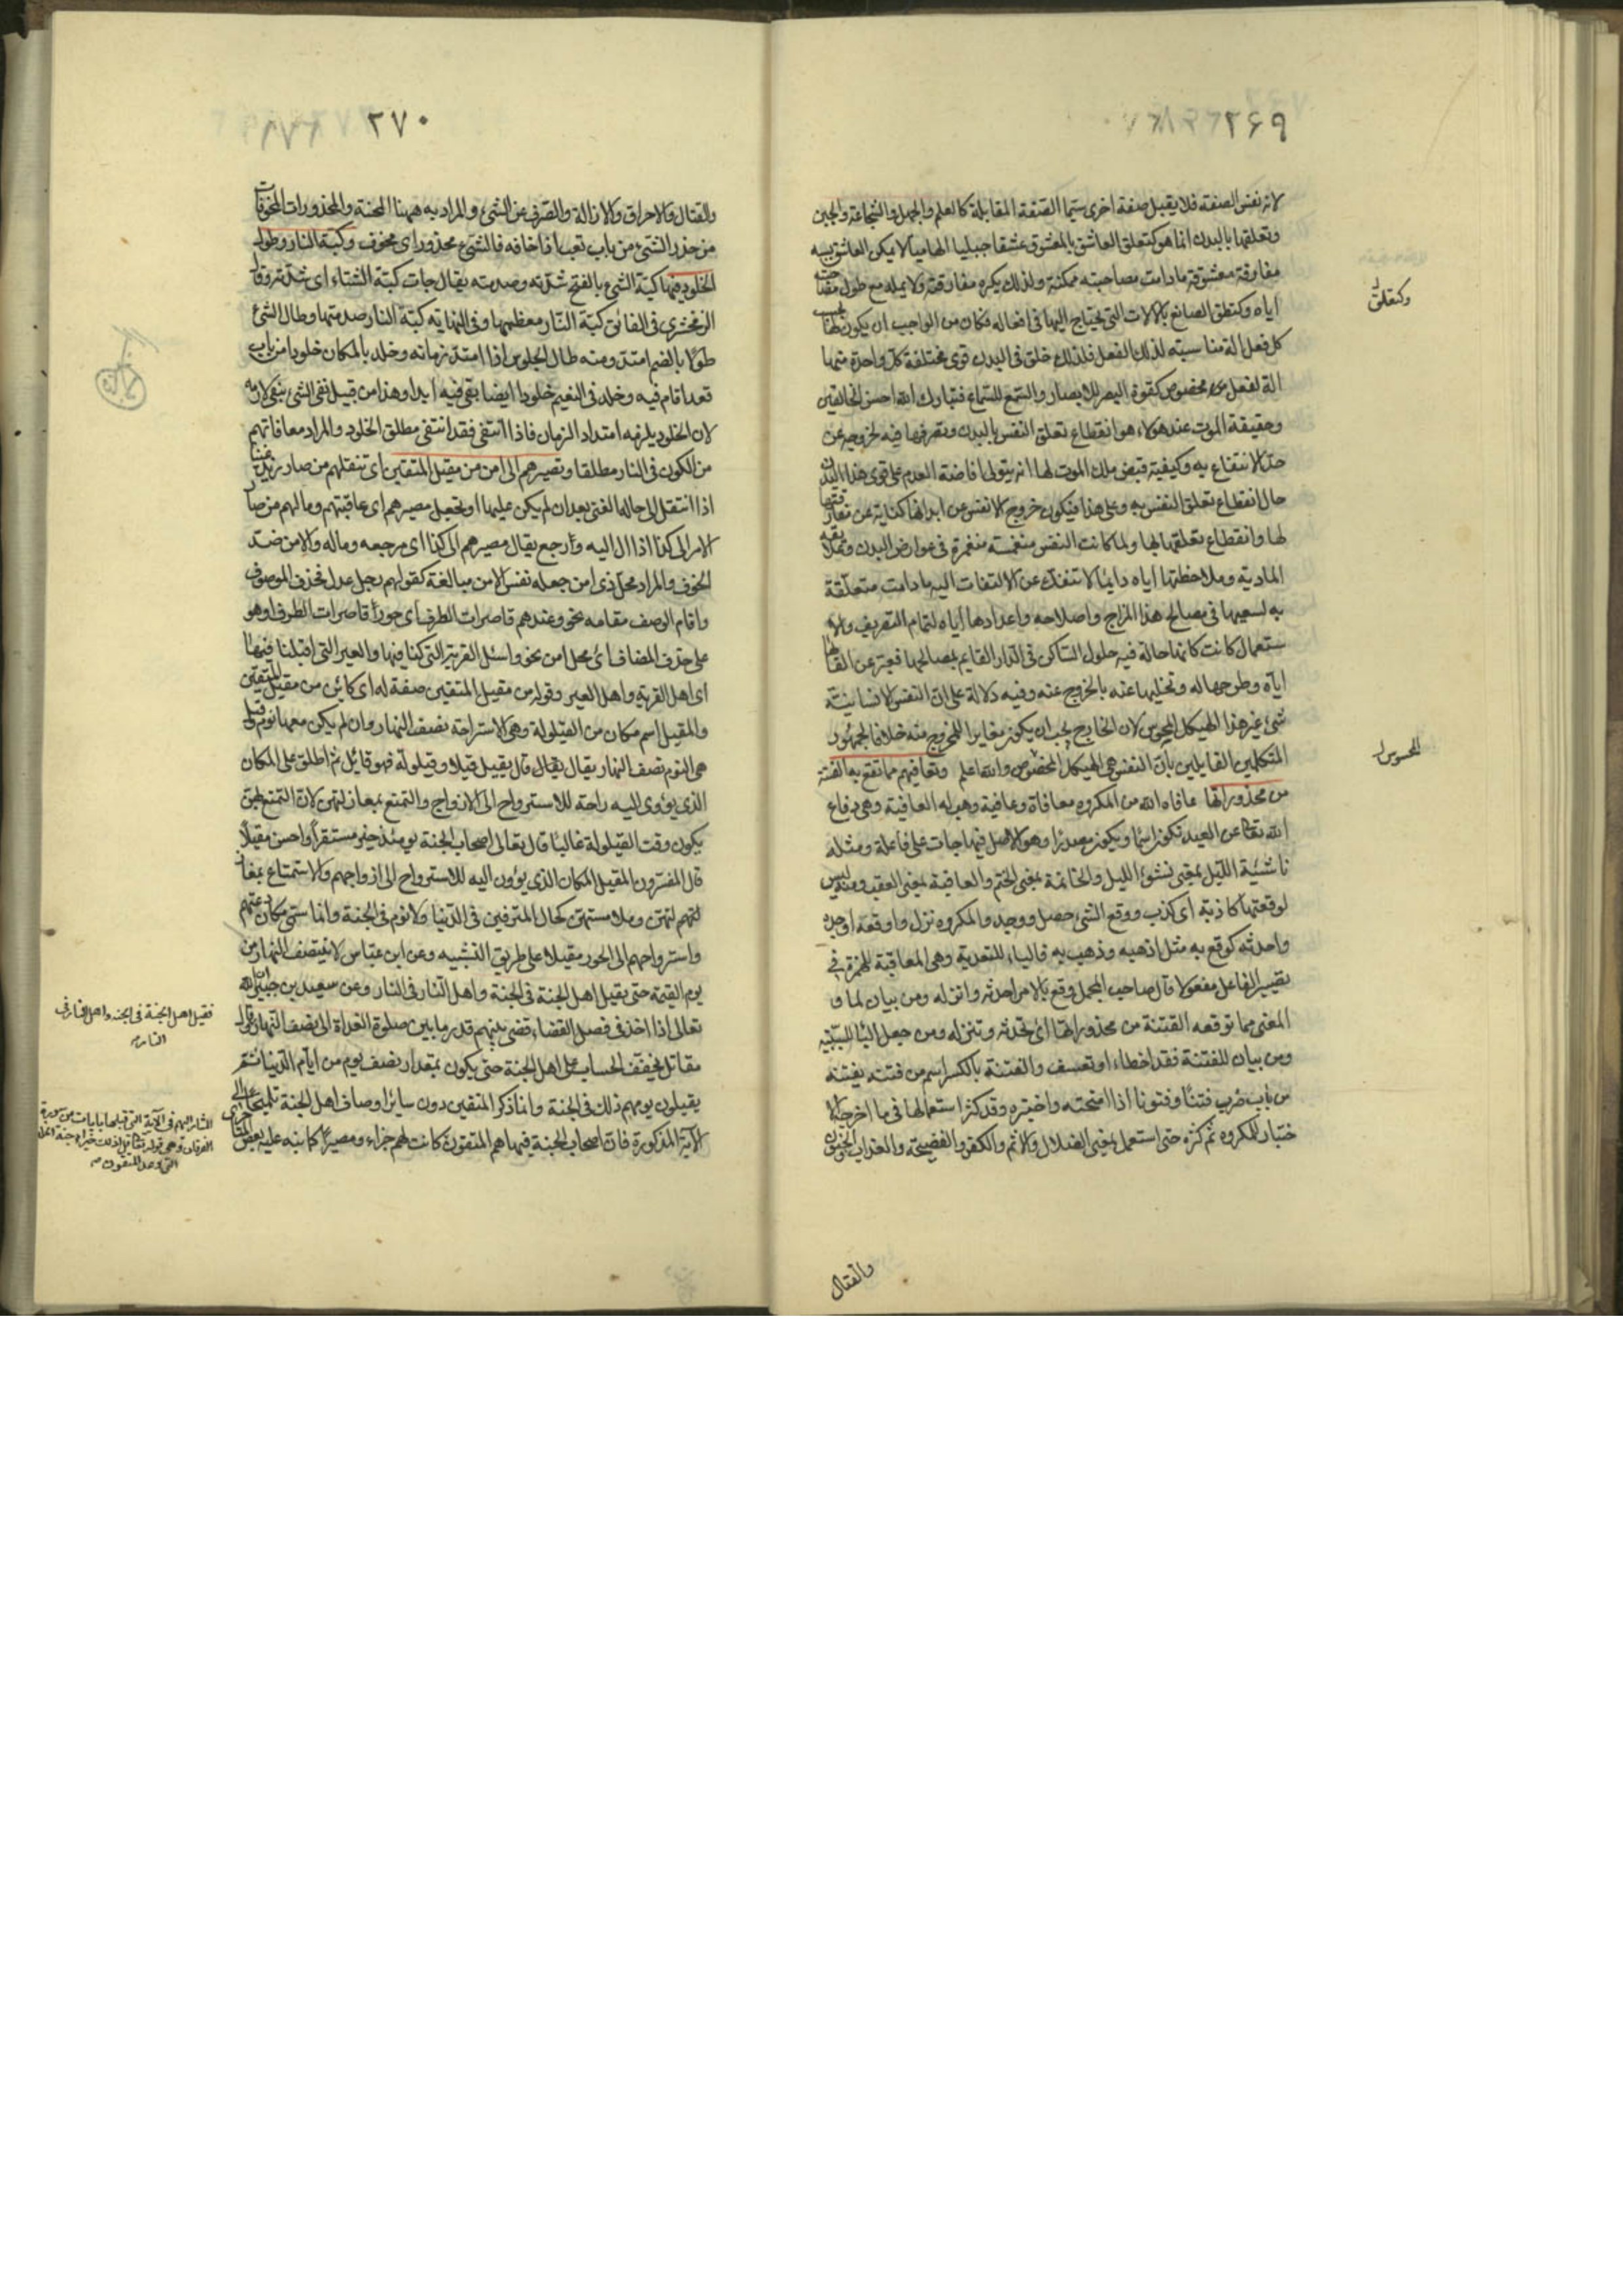 ٢٦٩
لانه نفس الصفة فلا يقبل صفة اخرى سيما الصفة المقابلة كالعلم والجهل والشجاعة والجبن
وتعلقها بالبدن انما هو كتعلق العاشق بالمعشوق عشقا جبليا الهاميا لا يمكن العاشق بسببه
مفارقة معشوقة ما دامت مصاحبته ممكنة ولذلك يكره مفارقته ولا يمله مع طول مصاحبته
اياه وكتعلق الصانع بالآلات التي يحتاج اليها في افعاله فكان من الواجب ان يكون لها بحسب
كل فعل الة مناسبته لذلك الفعل فلذلك خلق في البدن قوى مختلفة كل واحدة منها
الة لفعل مخصوص كقوة البصر للابصار والسمع للسماع فتبارك الله احسن الخالقين
وحقيقة الموت عند هؤلاء هو انقطاع تعلق النفس بالبدن وتصرفها فيه لخروجه عن
حد الانتفاع به وكيفية قبض ملك الموت لها انه يتولى افاضة العدم على قوى هذا البدن
حال انقطاع تعلق النفس به وعلى هذا فيكون خروج الانفس عن ابدانها كناية عن مفارقتها
لها وانقطاع تعلقها بها ولما كانت النفس منغمسة منغمرة في عوارض البدن وعلايقه
المادية وملاحظتها اياه دايما لا تنفك عن الالتفات اليه ما دامت متعلقة
به لسعيها في مصالح هذا المزاج واصلاحه واعدادها اياه لتمام التصريف والا
ستعمال كانت كانها حالة فيه حلول الساكن في الدار القايم بمصالحها فعبر عن القائها
اياه وطرحها له وتخليها عنه بالخروج عنه وفيه دلالة على ان النفس الانسانية
شيء غير هذا الهيكل المحسوس لان الخارج يجب ان يكون مغايرا للمخروج منه خلافا لجمهور
المتكلمين القايلين بان النفس هي الهيكل المخصوص والله اعلم وتعافيهم مما تقع به الفتنة
من محذوراتها عافاه الله من المكروه معافاة وعافية وهب له العافية وهي دفاع
الله تعالى عن العبد تكون اسما ويكون مصدرا وهو الاصل فيها جاءت على فاعلة ومثله
ناشئة الليل بمعنى نشوء الليل والخاتمة بمعنى الختم والعاقبة بمعنى العقب ومنه ليس
لوقعتها كاذبة اى كذب ووقع الشيء حصل ووجد والمكروه نزل واوقعه اوجده
واحدثه كوقع به مثل اذهبه وذهب به فالباء للتعدية وهي المعاقبة للهمزة في
تصيير الفاعل مفعولا قال صاحب المجمل وقع بالامر احدثه وانزله ومن بيان لما و
المعنى مما توقعه الفتنة من محذوراتها اى تحدثه وتنزله ومن جعل الباء للسببية
ومن بيان للفتنة فقد اخطاء او تعسف والفتنة بالكسر اسم من فتنه يفتنه
من باب ضرب فتنا وفتونا اذا امتحنه واختبره وقد كثر استعمالها فيما اخرجه الا
ختبار للمكروه ثم كثر حتى استعمل بمعنى الضلال والاثم والكفر والفضيحة والعذاب والجنون
والقتال
وكتعلق
المحسوس
٢٧٠
والقتال والاحراق والازالة والصرف عن الشيء والمراد به ههنا المحنة والمحذورات المخوفات
من حذر الشيء من باب تعب اذا خافه فالشيء محذور اى مخوف وكبة النار وطول
الخلود فيها كبة الشيء بالفتح شدته وصدمته يقال جاءت كبة الشتاء اى شدته وقال
الزمخشرى في الفائق كبة النار معظمها وفي النهاية كبة النار صدمتها وطال الشيء
طولا بالضم امتد ومنه طال الجلوس اذا امتد زمانه وخلد بالمكان خلودا من باب
قعد اقام فيه وخلد في النعيم خلودا ايضا بقى فيه ابدا وهذا من قبيل نفى الشيء بنفى لازمه
لان الخلود يلزمه امتداد الزمان فاذا انتفى فقد انتفى مطلق الخلود والمراد معافاتهم
من الكون في النار مطلقا وتصيرهم الى امن من مقيل المتقين اى تنقلهم من صار زيد غنيا
اذا انتقل الى حالة الغنى بعد ان لم يكن عليها او تجعل مصيرهم اى عاقبتهم ومالهم من صار
الامر الى كذا اذا ال اليه وارجع يقال مصيرهم الى كذا اى مرجعه وماله والامن ضد
الخوف والمراد محل ذى امن جعله نفس الامن مبالغة كقولهم رجل عدل فحذف الموصوف
واقام الوصف مقامه نحو وعندهم قاصرات الطرف اى حورا قاصرات الطرف او هو
على حذف المضاف اى محل امن نحو واسئل القرية التي كنا فيها والعير التي اقبلنا فيها
اى اهل القرية واهل العير وقوله من مقيل المتقين صفة له اى كائن من مقيل المتقين
والمقيل اسم مكان من القيلولة وهي الاستراحة نصف النهار وان لم يكن معها نوم وقيل
هي النوم نصف النهار يقال قال يقيل قيلا وقيلولة فهو قائل ثم اطلق على المكان
الذى يؤوى اليه راحة للاسترواح الى الازواج والتمتع بمغازلتهن لان التمتع بهن
يكون وقت القيلولة غالبا قال تعالى اصحاب الجنة يومئذ خير مستقرا واحسن مقيلا
قال المفسرون المقيل المكان الذى يؤون اليه للاسترواح الى ازواجهم والاستمتاع بمغا
زلتهم لهن وملامستهن كحال المترفين في الدنيا ولا نوم في الجنة وانما سمى مكان دعتهم
واسترواحهم الى الحور مقيلا على طريق التشبيه وعن ابن عباس لا ينتصف النهار من
يوم القيمة حتى يقيل اهل الجنة في الجنة واهل النار في النار وعن سعيد بن جبير ان الله
تعالى اذا اخذ في فصل القضاء قضى بينهم قدر ما بين صلوة الغداة الى نصف النهار وقال
مقاتل يخفف الحساب على اهل الجنة حتى يكون بمقدار نصف يوم من ايام الدنيا ثم
يقيلون يومهم ذلك في الجنة وانما ذكر المتقين دون ساير اوصاف اهل الجنة تلميحا الى
الآية المذكورة فان اصحاب الجنة فيها هم المتقون كانت لهم جزاء ومصيرا كما نبه عليه بعض
فيقيل اهل الجنة في الجنة واهل النار في
النار
المشار اليهم في الآية التي قبلها بايات من سورة
الفرقان وهي قوله تعالى قل اذلك خير ام جنة الخلد
التي وعد المتقون